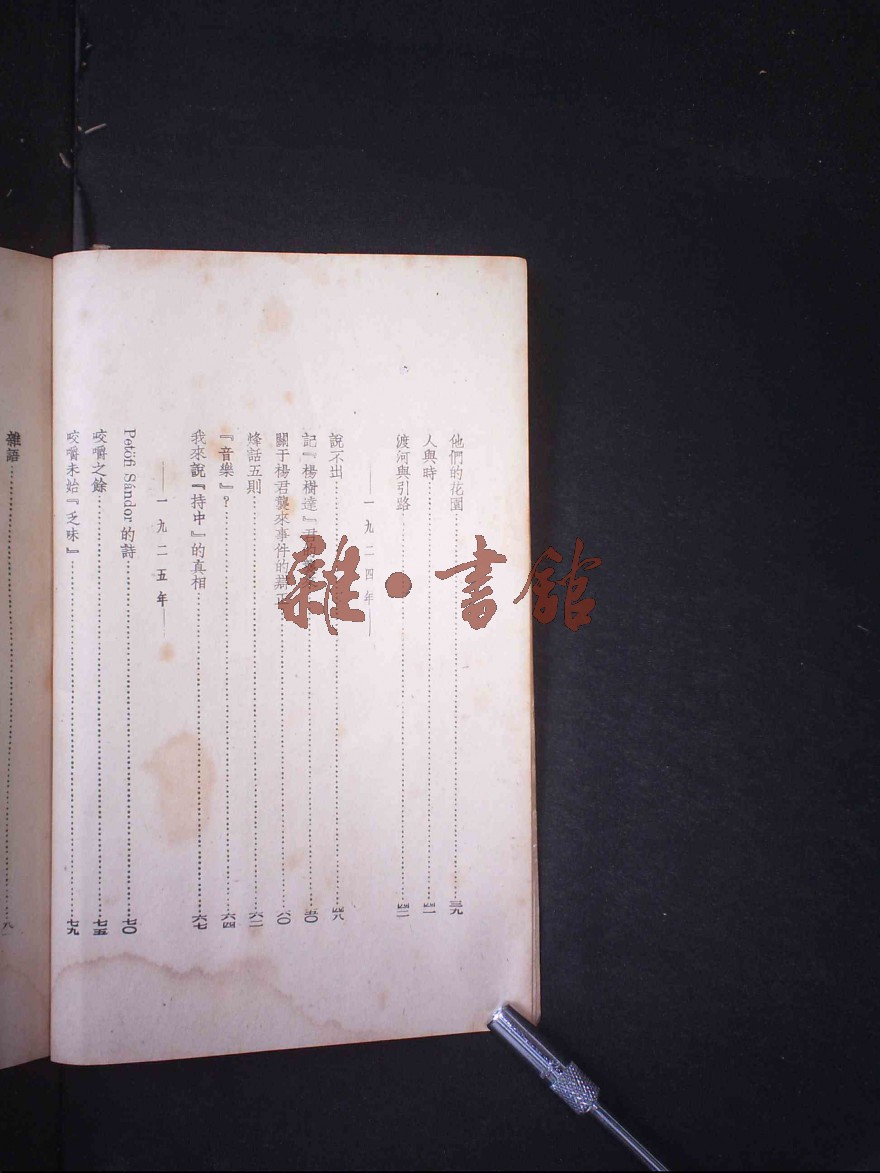 他們的花園……三九
人與時……四一
渡河與引路……四二
——一九二四年——
說不出……四八
記『楊樹達』君的……五〇
關于楊君襲來事件的辯正……六〇
烽話五則……六二
『音樂』？……六四
我來說『持中』的真相……六七
——一九二五年——
Petöfi Sándor 的詩……七〇
咬嚼之餘……七五
咬嚼未始『乏味』……七九
雜語……八
雜・書館